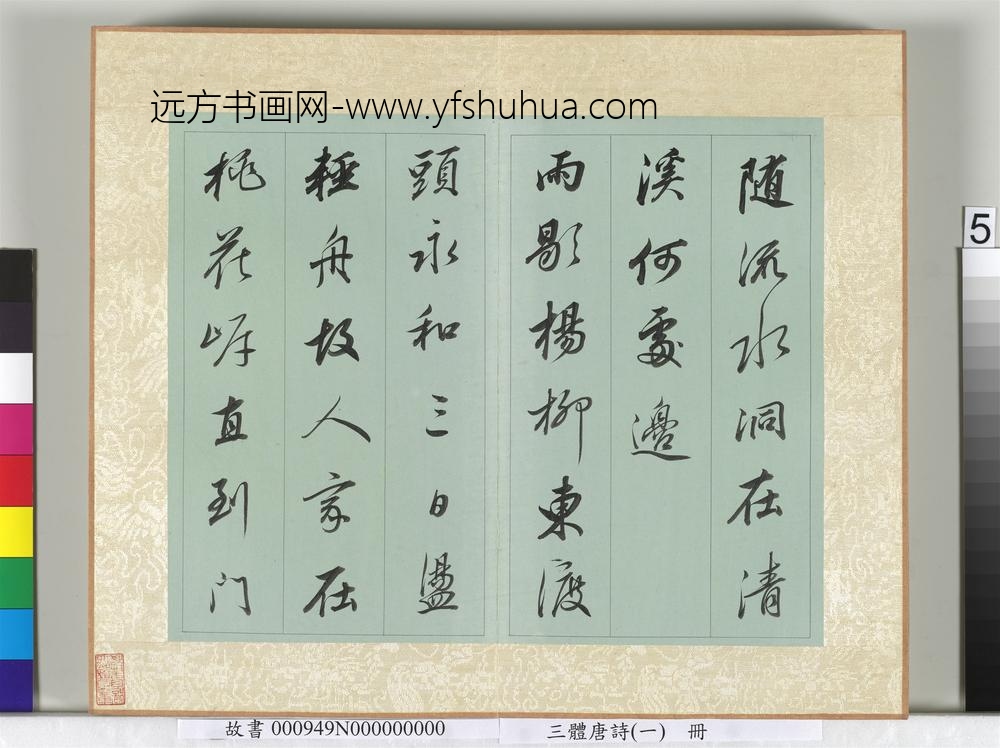 远方书画网-www.yfshuhua.com
随流水洞在清
溪何處邊
雨歇楊柳東渡
頭永和三日盪
輕舟故人家在
桃花岸直到门
5
故書 000949N000000000
三體唐詩(一) 冊